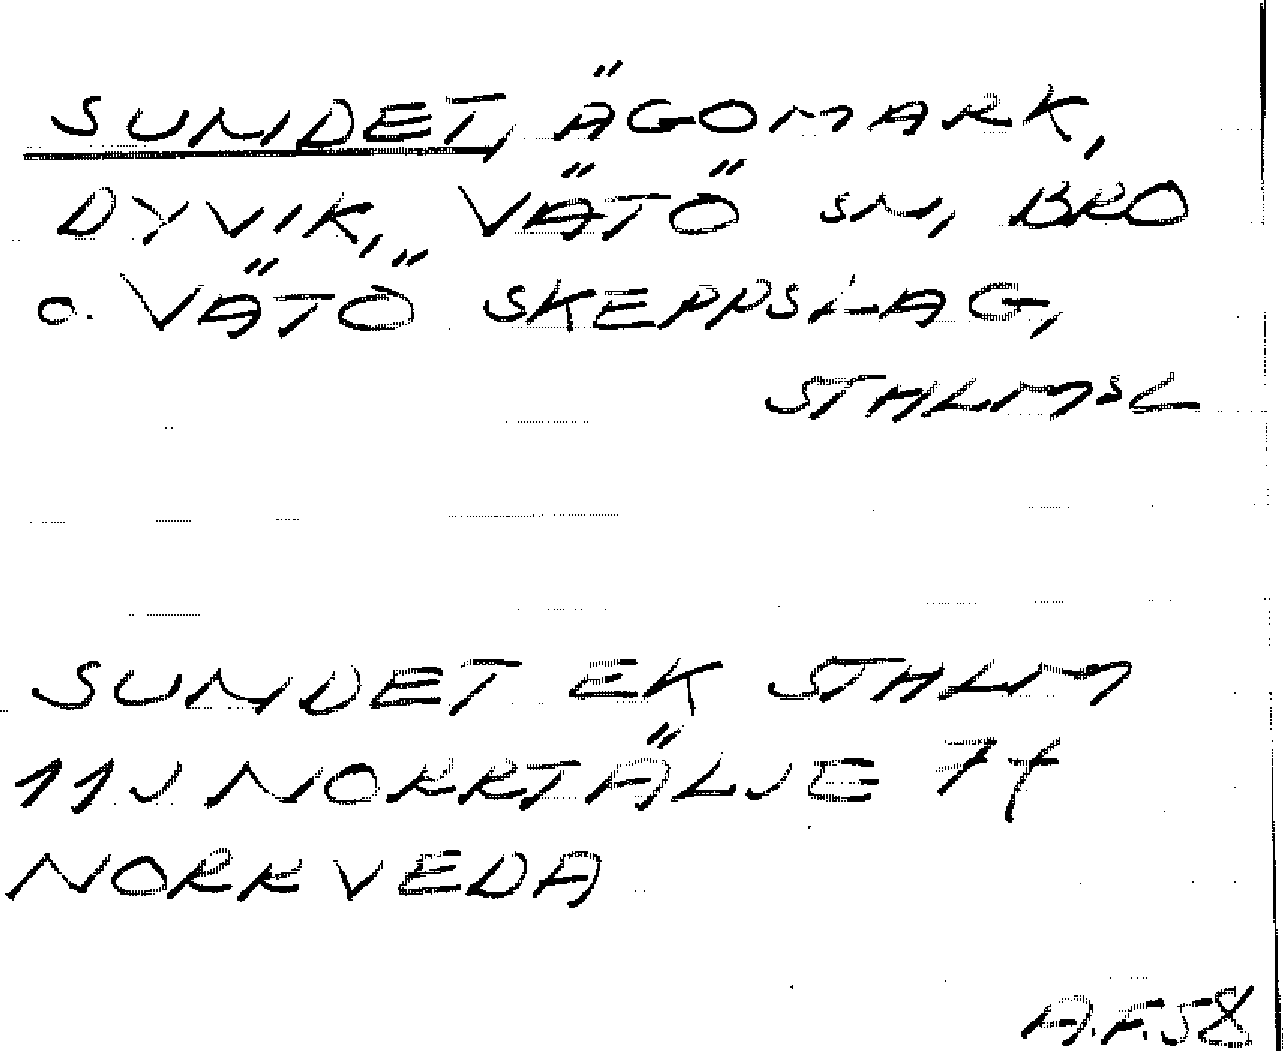 SUNDET, ÄGOMARK,
DYVIK, VÄTÖ SN, BRO
O. VÄTÖ SKEPPSLAG,
STHLMSL
SUNDET EK STHLM
11J NORRTÄLJE 74
NORRVEDA
A.F.58